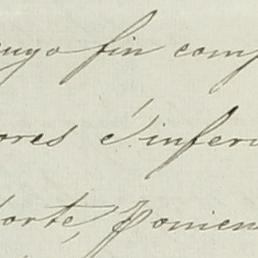 cuyo fin comp
ores é inferi
orte, ponien